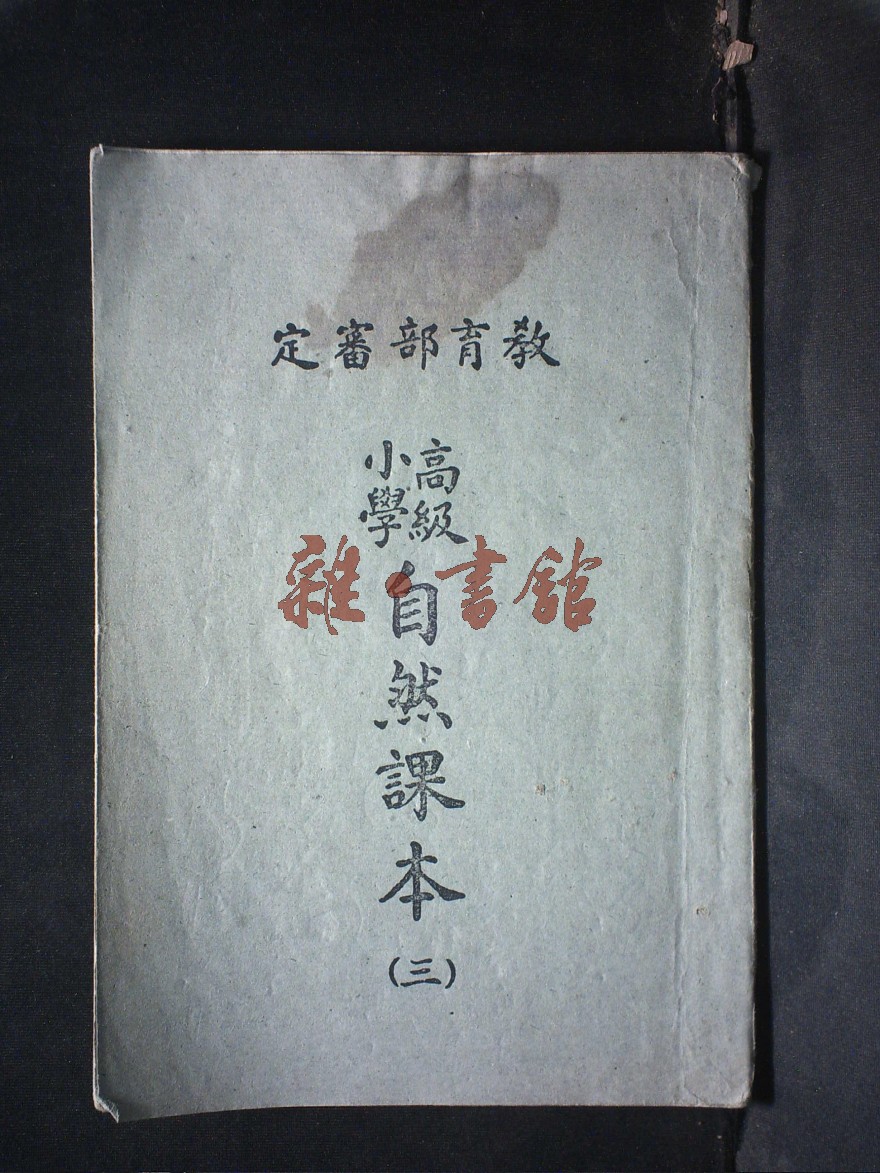 教育部審定
高級
小學
自然課本
(三)
雜·書館